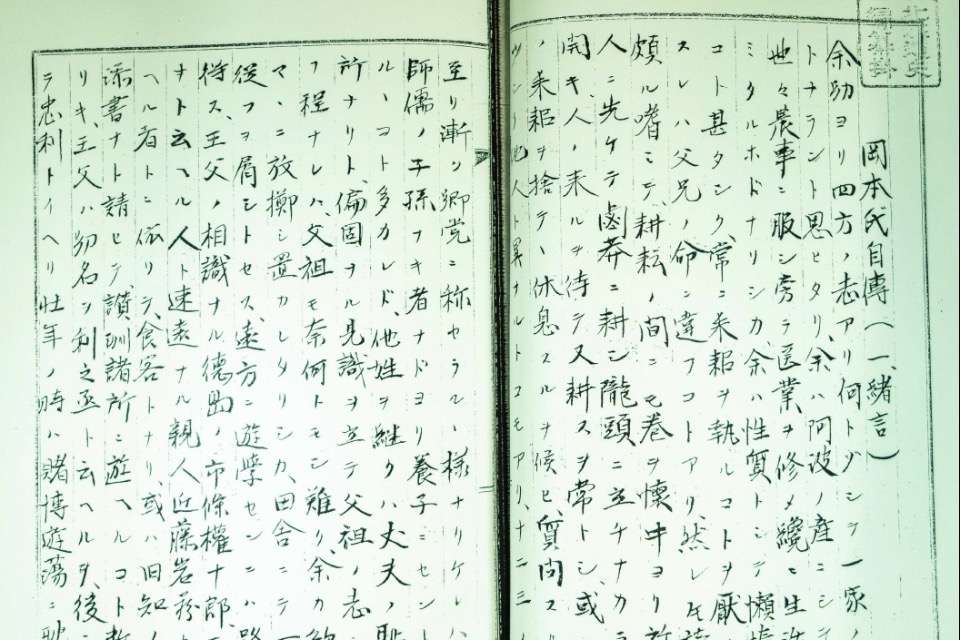 岡本氏自傳(一、緒言)
余幼ヨリ四方ノ志アリ何トゾシテ一家
トナラント思ヒタリ、余ハ阿波ノ産ニシ
世々農事ニ服シ旁テ医業ヲ修メ纔ニ生
ミタルホドナリシカ、余ハ性質トシテ懶
コト甚タシク、常ニ耒耜ヲ執ルコトヲ厭
スレハ父兄ノ命ニ違フコトアリ、然レ
頗ル嗜ミテ、耕耘ノ間ニモ巻ヲ懐中ヨリ
人ニ先ケテ鹵莽ニ耕シ隴頭ニ立チナカ
開キ、人ノ来ルヲ待テ又耕スヲ常トシ、或
ノ耒耜ヲ捨テヽ休息スルヲ候ヒ、質問ス
他人ト異ナルトコモアリ、十二三
至リ漸ク郷党ニ称セラルヽ様ナリケレハ
師儒ノ子孫フキ者ナドヨリ養子ニセント
ルヽコト多カレド、他姓ヲ継クハ丈夫ノ恥
所ナリト、偏固ナル見識ヲ立テ父祖ノ志
フ程ナレハ、父祖モ奈何トモシ難リ、余カ
マヽニ放擲シ置カレタリシカ、田舎ニテ
従フヲ屑シトセス、遠方ニ遊学セン
待ス、王父ノ相識ナル徳島ノ市條權十郎
ヲト云ヘル人ト速遠ナル親人近藤岩
ヘル者トニ依リテ、食客トナリ、或ハ旧知ノ
添書ナト請ヒテ讃酬諸所ニ遊ヘルコト
リキ、王父ハ幼名ヲ利之丞ト云ヘルヲ、後ニ
ラ忠利トイヘリ壮年ノ時ハ賭博遊蕩ニ